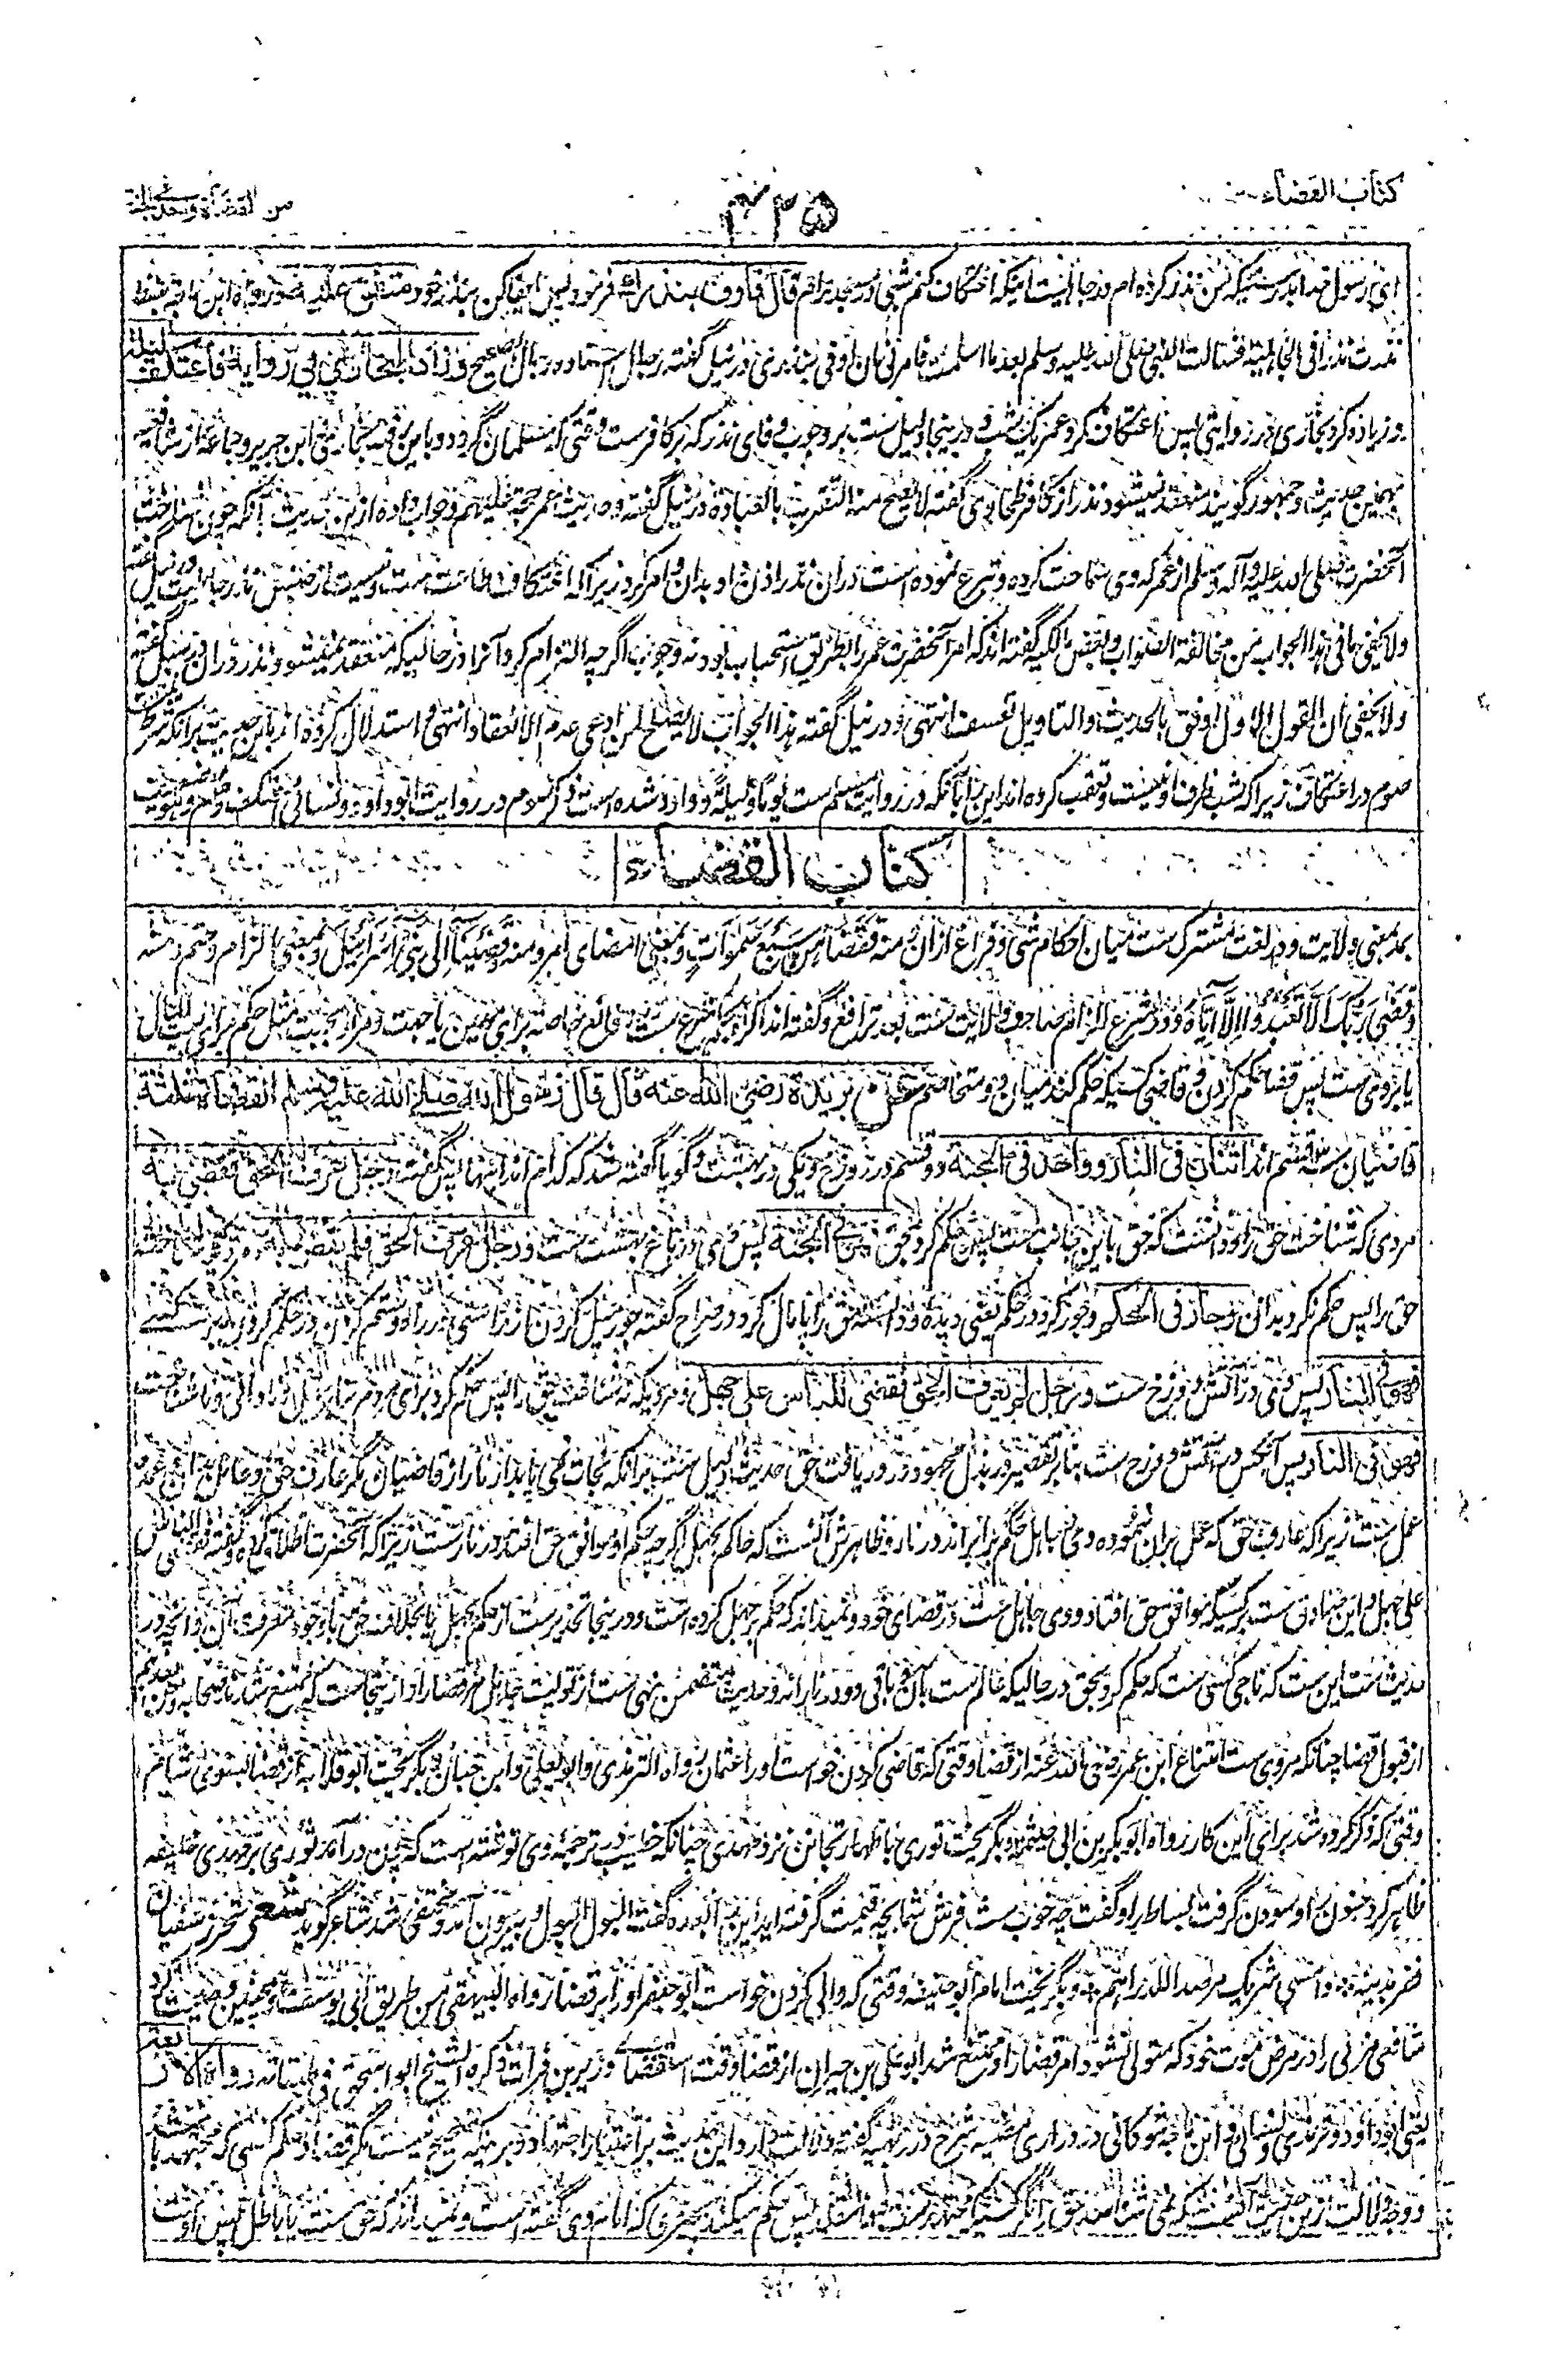 کتاب القضاء
۴۲۵
من القضاة وحد فی الجنة
ای رسول خدا بدرستیکه من نذر کرده ام در جاهلیت اینکه اعتکاف کنم شبی در مسجد حرام قال فاوف بنذرك فرمود پس ایفا کن بنذر خود متفق علیه
نذرت نذرا فی الجاهلیة فسالت النبی صلی الله علیه وسلم بعد ما اسلمت فامرنی ان اوفی بنذری در نیل گفته رجال اسناد و رجال صحیح وزاد البخاری فی روایة فاعتکف لیلة
و زیاده کرد بخاری در روایتی پس اعتکاف کرد عمر یک شب و درینجا دلیل ست بر وجوب وفای نذر که بر کافرست وقتی که مسلمان گردد و باین رفته بخاری و ابن جریر و جماعه از شافعیه
بهمین حدیث و جمهور گویند منعقد نمیشود نذر از کافر طحاوی گفته لا یصح منه التقرب بالعبادة در نیل گفته و حدیث عمر حجة علیهم و جواب داده ازین حدیث بآنکه چون شناخت
آنحضرت صلی الله علیه وآله وسلم از عمر که وی سماحت کرده و تبرع نموده است دران نذر اذن او بدان امر کرد زیرا که اعتکاف طاعت ست و نیست از جنس نذر جاهلیت در نیل گفته
ولا یخفی ما فی هذا الجواب من مخالفة الصواب و بعض مالکیه گفته اند که امر آنحضرت عمر را بطریق استحباب بود نه وجوب اگرچه التزام کرد آنرا در حالیکه منعقد نمیشود نذر دران در سبل گفته
ولا یخفی ان القول الاول اوفق بالحدیث والتاویل تعسف انتهی و در نیل گفته هذا الجواب لا یصلح لمن ادعی عدم الانعقاد انتهی و استدلال کرده اند باین حدیث برانکه شرط نیست
صوم در اعتکاف زیرا که شب ظرف او نیست و تعقب کرده اند این را بآنکه در روایت مسلم ست یوما و لیلة و وارد شده است ذکر صوم در روایت ابوداود و نسائی اعتکف وصم و هو ضعیف
کتاب القضاء
بمد بمعنی ولایت و در لغت مشترک ست میان احکام شی و فراغ ازان و منه فَقَضَاهُنَّ سَبْعَ سَمٰوَاتٍ و بمعنی امضای امر و منه وَقَضَیْنَا اِلٰی بَنِی اِسْرَائِیْلَ و بمعنی الزام و حتم و منه
وَقَضٰی رَبُّکَ اَلَّا تَعْبُدُوْا اِلَّا اِیَّاهُ و در شرع الزام صاحب ولایت ست بعد ترافع و گفته اند اکراه بحکم شرع ست در وقائع خاصه برای معین یا جهت و مراد بجهت مثل حکم برای بیت المال
یا بروی ست پس قضا حکم کردن و قاضی کسیکه حکم کند میان دو متخاصم عن بریدة رضی الله عنه قال قال رسول الله صلی الله علیه وسلم القضاة ثلثة
قاضیان سه قسم اند اثنان فی النار وواحد فی الجنة دو قسم در دوزخ و یکی در بهشت و گویا گفته شد که کدام اند اینها پس گفت رجل عرف الحق فقضی به
مردی که شناخت حق را و دانست که حق باین جانب ست پس حکم کرد بحق فهو فی الجنة پس وی در باغ بهشت ست ورجل عرف الحق فلم یقض به
حق را پس حکم نکرد بدان وجار فی الحکم و جور کرد در حکم یعنی دیده و دانسته حق را پامال کرد و در صراح گفته جور میل کردن از راستی در راه و ستم کردن در حکم
فهو فی النار پس وی در آتش دوزخ ست ورجل لم یعرف الحق فقضی للناس علی جهل و مردیکه نشناخت حق را پس حکم کرد برای مردم
فهو فی النار پس آنکس در آتش دوزخ ست بنا بر تقصیر در بذل مجهود در دریافت حق حدیث دلیل ست برانکه نجات نمی یابد از نار از قاضیان مگر عارف حق و عامل بدان و عمده
عمل ست زیرا که عارف حق که عمل بران ننموده وی و جاهل حکم برابر اند در نار و ظاهرش آنست که حاکم بجهل اگرچه حکم او موافق حق افتد در نارست زیرا که آنحضرت اطلاق کرده و گفته فقضی للناس
علی جهل و این صادق ست بر کسیکه موافق حق افتاد و وی جاهل ست در قضای خود و نمیداند که حکم بر جهل کرده است و درینجا تحذیرست از حکم بجهل یا بخلاف حق با وجود معرفت بآن و آنچه در
حدیث ست این ست که ناجی کسی ست که حکم کرد بحق در حالیکه عالم ست بآن و باقی دو در نار اند و حدیث متضمن نهی ست از تولیت جاهل مر قضا را و ازینجاست که ممتنع شدند صحابه و من بعدهم
از قبول قضا چنانکه مروی ست امتناع ابن عمر رضی الله عنه از قضا وقتی که قاضی کردن خواست او را عثمان رواه الترمذی وابو یعلی وابن حبان و بگریخت ابو قلابه از قضا بسوی شام
وقتی که ذکر کرده شد برای این کار رواه ابوبکر بن ابی خیثمة و بگریخت ثوری باظهار تجانن نزد مهدی چنانکه خطیب در ترجمه وی نوشته است که چون درآمد ثوری بر مهدی خلیفه
ظاهر کرد جنون را و سودن گرفت بساط را و گفت چه خوب ست فرش شما بچه قیمت گرفته اید این را بعده گفت البول البول و بیرون آمد و مختفی شد شاعر گوید شعر تحرز سفیان
ففر بدینه وامسی شریک مرصدا للدراهم و بگریخت امام ابو حنیفه وقتی که والی کردن خواست ابو جعفر او را بر قضا رواه البیهقی من طریق ابی یوسف و همچنین وصیت کرد
شافعی مزنی را در مرض موت خود که متولی نشود امر قضا را و ممتنع شد ابو علی بن خیران از قضا وقت استقضای وزیر بن فرات ذکره الشیخ ابو اسحق فی طبقاته رواه الاربعة
یعنی ابوداود و ترمذی و نسائی و ابن ماجه شوکانی در دراری مضیه شرح درر بهیه گفته و دلالت دارد این حدیث بر اعتبار اجتهاد و برینکه صحیح نیست مگر قضا و حکم کسی که مجتهد باشد
و وجه دلالت ازین حدیث آنست که نمی شناسد حق را مگر کسیکه مجتهدست و اما مقلد پس حکم میکند بچیزی که امام وی گفته است و نمیداند که حق ست یا باطل پس او ست